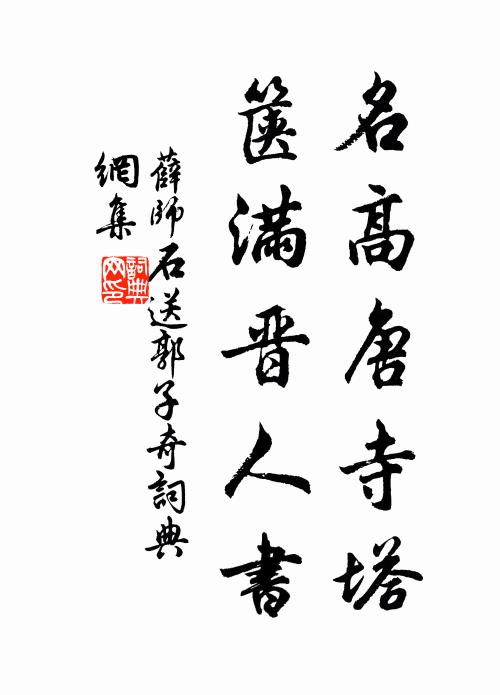 名高唐寺塔
篋滿晋人書
薛師石送郭子奇詞典
網集
詞典網印